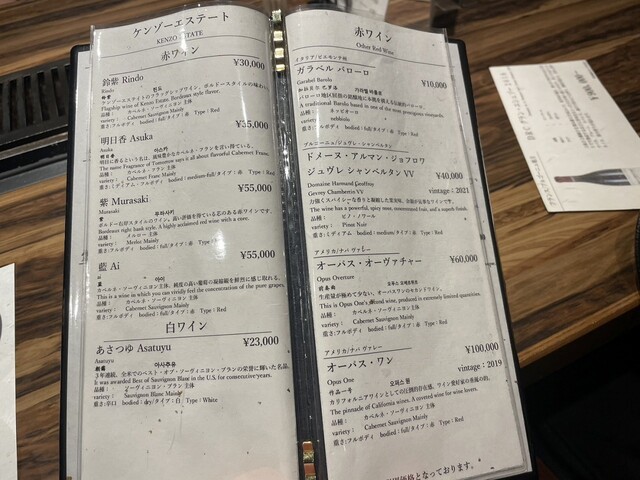 ケンゾーエステート
KENZO ESTATE
赤ワイン
鈴紫 Rindo ¥30,000
Rindo 린도
鈴紫
Flagship wine of Kenzo Estate. Bordeaux style flavor.
品種： カベルネ・ソーヴィニヨン 主体
variety： Cabernet Sauvignon Mainly
重さ:フルボディ bodied：full/タイプ：赤 Type：Red
明日香 Asuka ¥35,000
Asuka 아스카
明日香
The name Fragrance of Tomorrow says it all about flavorful Cabernet Franc.
品種： カベルネ・フラン 主体
variety： Cabernet Franc Mainly
重さ:ミディアム・フルボディ bodied：medium-full/タイプ：赤 Type：Red
紫 Murasaki ¥55,000
Murasaki 무라사키
紫
Bordeaux right bank style. A highly acclaimed red wine with a core.
品種： メルロー 主体
variety： Merlot Mainly
重さ:フルボディ bodied：full/タイプ：赤 Type：Red
藍 Ai ¥55,000
ai 아이
藍
This is a wine in which you can vividly feel the concentration of the pure grapes.
品種： カベルネ・ソーヴィニヨン 主体
variety： Cabernet Sauvignon Mainly
重さ:フルボディ bodied：full/タイプ：赤 Type：Red
白ワイン
あさつゆ Asatuyu ¥23,000
Asatuyu 아사츠유
朝露
3年連続、全米でのベスト・オブ・ソーヴィニヨン・ブランの栄誉に輝いた名品。
It was awarded Best of Sauvignon Blanc in the U.S. for consecutive/years.
品種： ソーヴィニヨン・ブラン 主体
variety： Sauvignon Blanc Mainly
重さ:辛口 bodied：dry/タイプ：白 Type：White
赤ワイン
Other Red Wine
イタリア/ピエモンテ州
ガラベル バローロ ¥10,000
Garabel Barolo
A traditional Barolo based in one of the most prestigious vineyards.
品種： ネッビオーロ
variety： nebbiolo
重さ:フルボディ bodied：full/タイプ：赤 Type：Red
ブルゴーニュ/ジュヴレ・シャンベルタン
ドメーヌ・アルマン・ジョフロワ
ジュヴレ シャンベルタン VV ¥40,000
Domaine Harmand Geoffroy
Gevrey Chambertin VV vintage：2021
力強くスパイシーな香りと凝縮した果実味、余韻が見事なワインです。
The wine has a powerful, spicy nose, concentrated fruit, and a superb finish.
品種： ピノ・ノワール
variety： Pinot Noir
重さ:ミディアム bodied：medium/タイプ：赤 Type：Red
アメリカ/ナパ ヴァレー
オーパス・オーヴァチャー ¥60,000
Opus Overture
This is Opus One's second wine, produced in extremely limited quantities.
品種： カベルネ・ソーヴィニヨン 主体
variety： Cabernet Sauvignon Mainly
重さ:フルボディ bodied：full/タイプ：赤 Type：Red
アメリカ/ナパ ヴァレー
オーパス・ワン ¥100,000
Opus One 오퍼스 원 vintage：2019
作品一号
カリフォルニアワインとしての圧倒的存在感、ワイン愛好家の垂涎の的。
The pinnacle of California wines. A coveted wine for wine lovers.
品種： カベルネ・ソーヴィニヨン 主体
variety： Cabernet Sauvignon Mainly
重さ:フルボディ bodied：full/タイプ：赤 Type：Red
価格となっております。